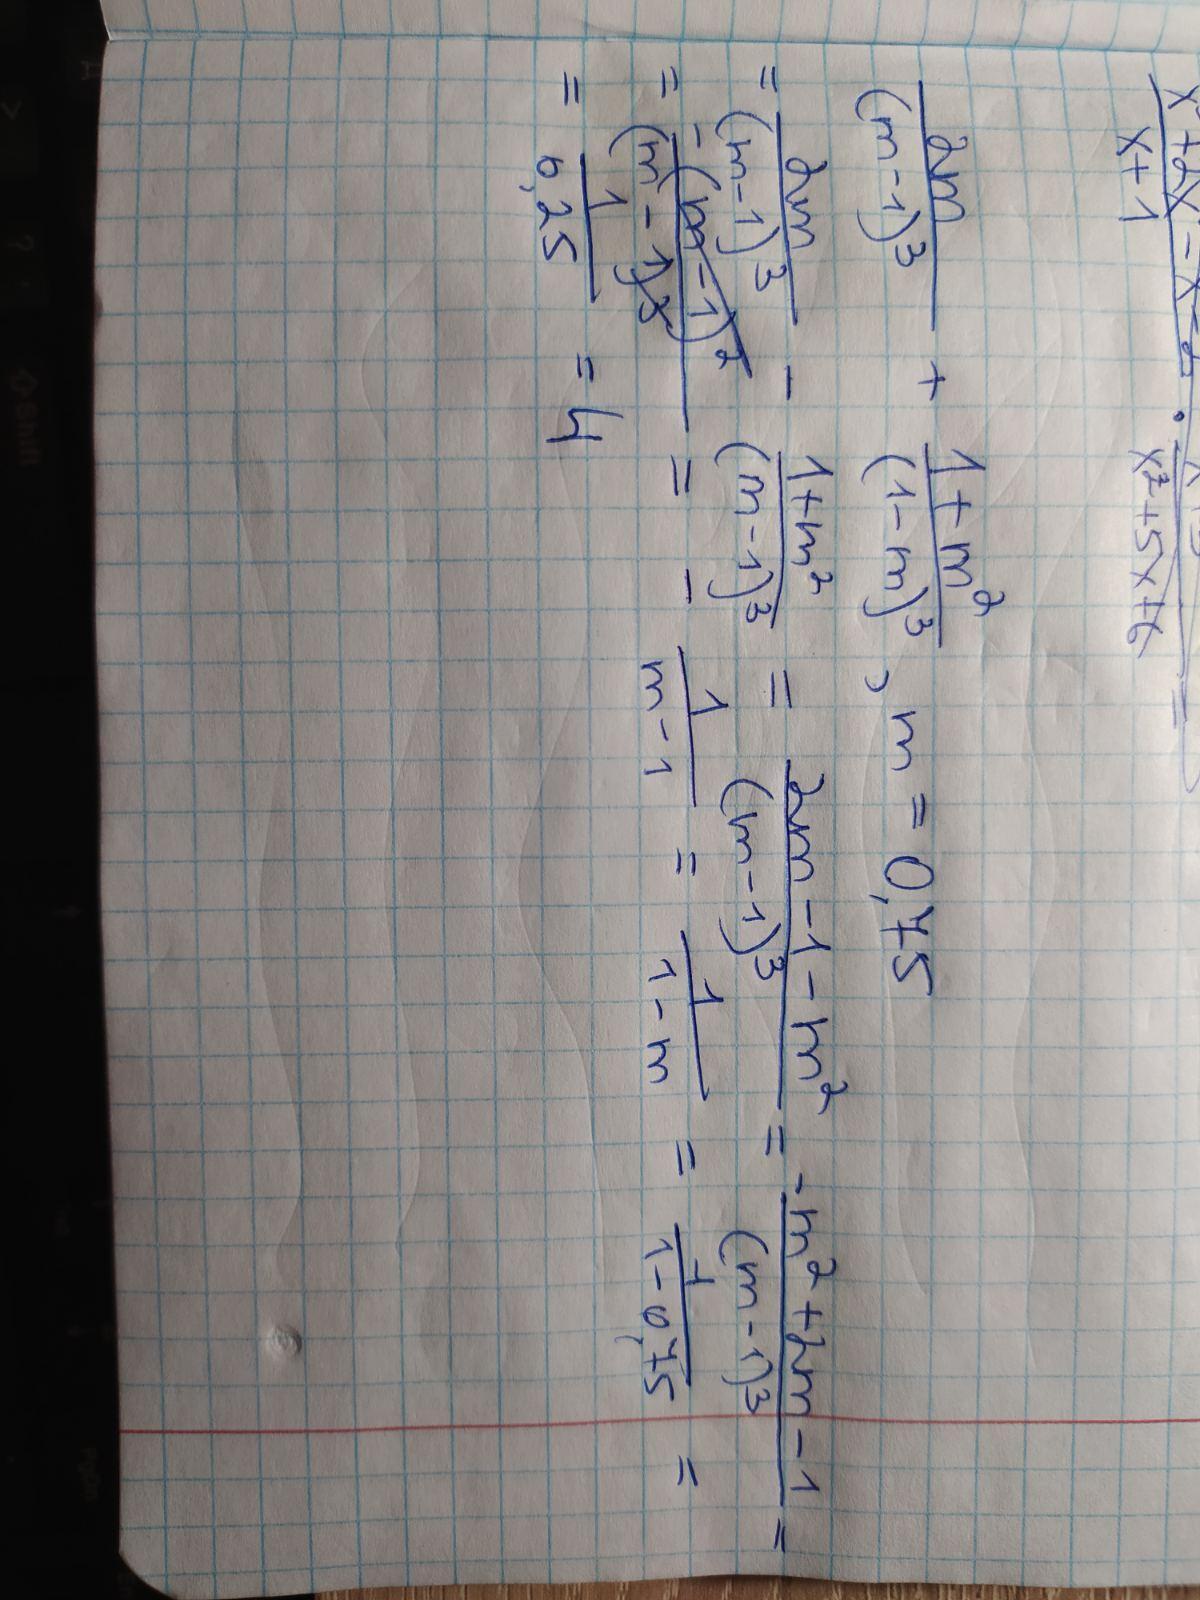 x+1
x²+5x+6
2m/(m-1)³ + 1+m²/(1-m)³, m = 0,75
= 2m/(m-1)³ - 1+m²/(m-1)³ = 2m-1-m²/(m-1)³ = -m²+2m-1/(m-1)³ =
= -(m-1)²/(m-1)³ = - 1/m-1 = 1/1-m = 1/1-0,75 =
= 1/0,25 = 4
Shift